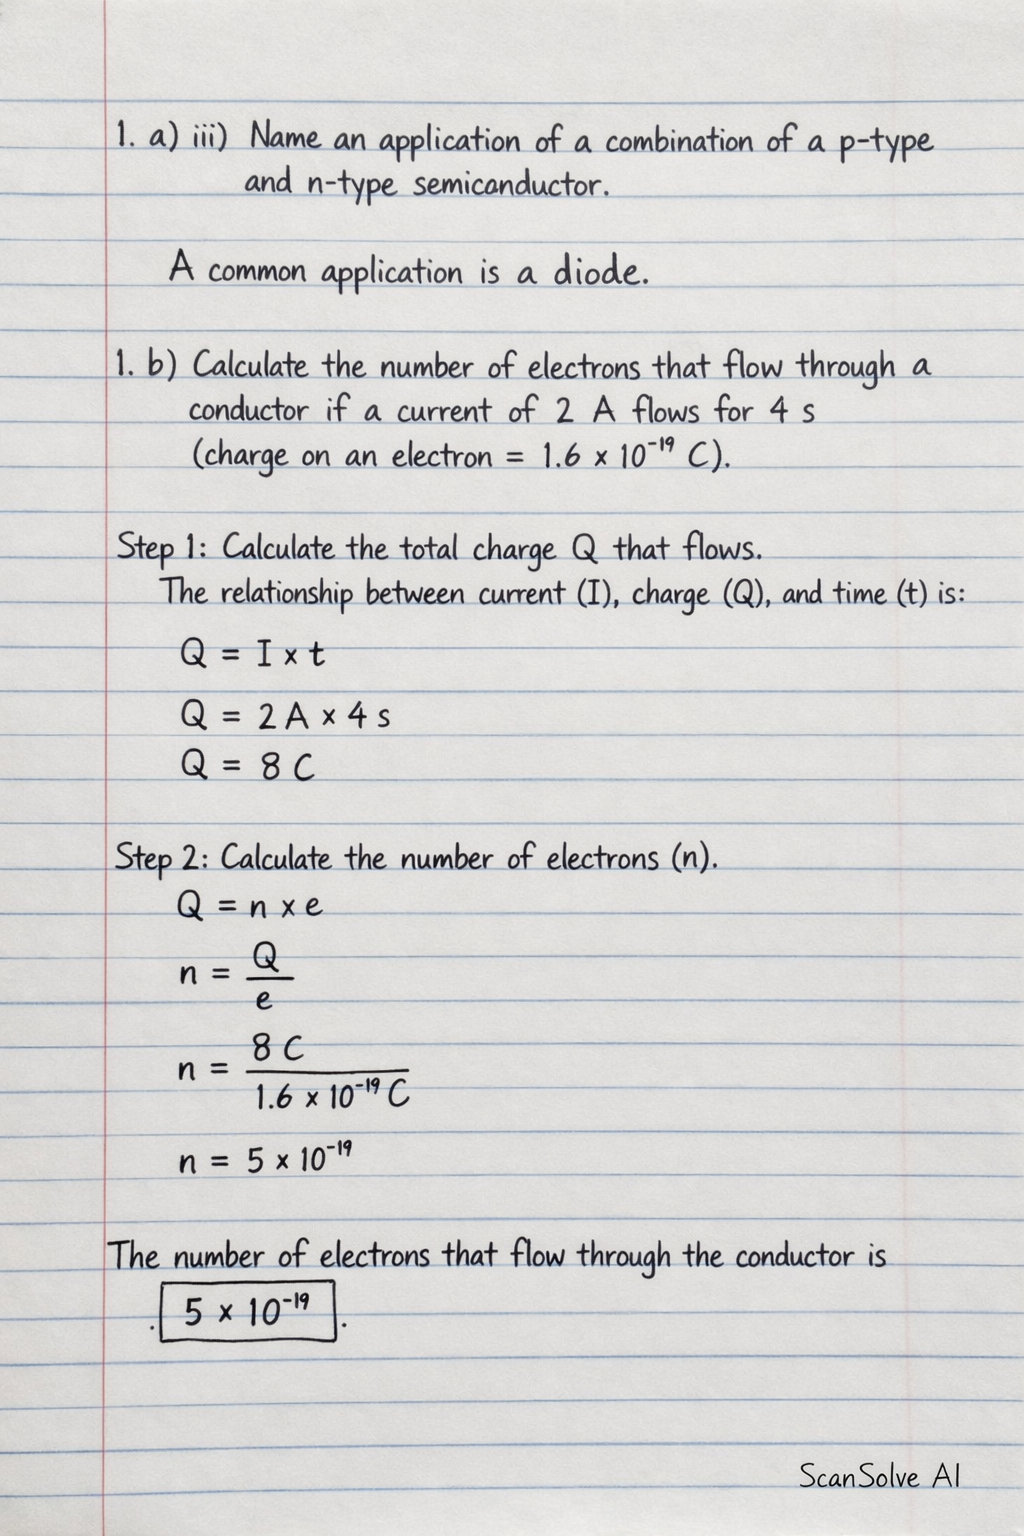 1. a) iii) Name an application of a combination of a p-type
and n-type semiconductor.
A common application is a diode.
1. b) Calculate the number of electrons that flow through a
conductor if a current of 2 A flows for 4 s
(charge on an electron = 1.6 × 10⁻¹⁹ C).
Step 1: Calculate the total charge Q that flows.
The relationship between current (I), charge (Q), and time (t) is:
Q = I × t
Q = 2 A × 4 s
Q = 8 C
Step 2: Calculate the number of electrons (n).
Q = n × e
n = Q/e
n = 8 C / 1.6 × 10⁻¹⁹ C
n = 5 × 10⁻¹⁹
The number of electrons that flow through the conductor is
. 5 × 10⁻¹⁹ .
ScanSolve AI